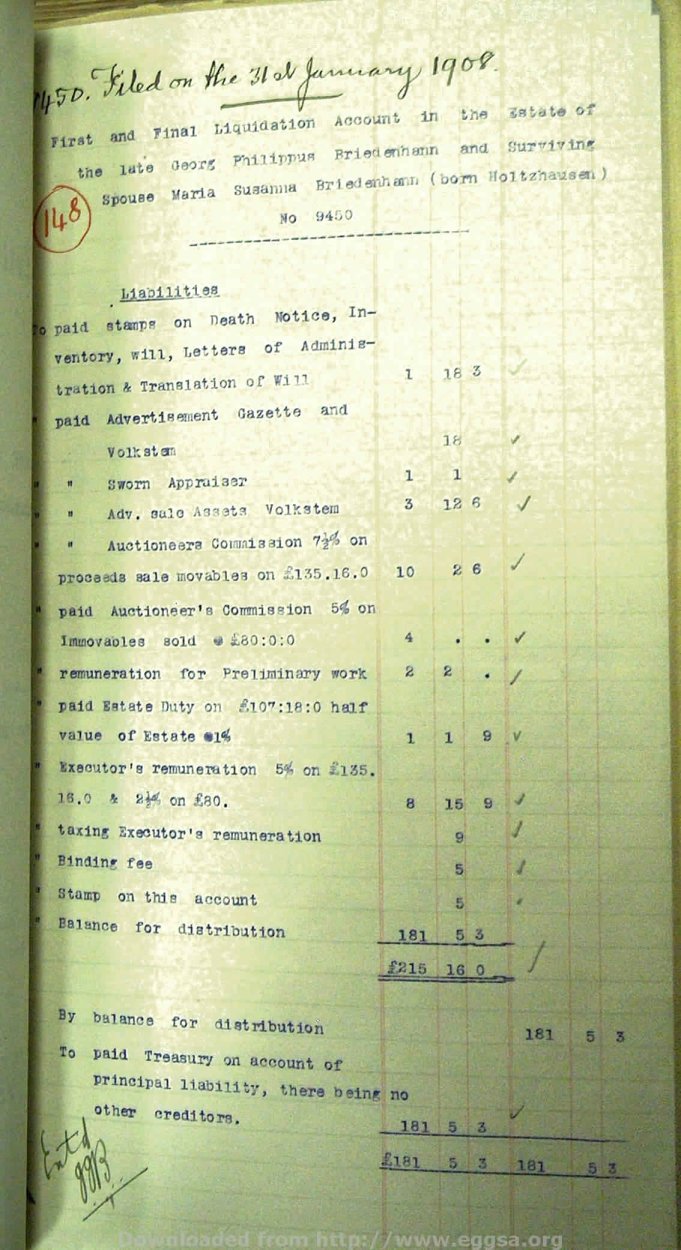 9450. Filed on the 31st January 1908.
First and Final Liquidation Account in the Estate of
the late Georg Philippus Briedenhann and Surviving
Spouse Maria Susanna Briedenhann (born Holtzhausen)
148
No 9450
Liabilities
To paid stamps on Death Notice, In-
ventory, will, Letters of Adminis-
tration & Translation of Will 1 18 3
" paid Advertisement Gazette and
Volkstem 18
" " Sworn Appraiser 1 1
" " Adv. sale Assets Volkstem 3 12 6
" " Auctioneers Commission 7½% on
proceeds sale movables on £135.16.0 10 2 6
" paid Auctioneer's Commission 5% on
Immovables sold @ £80:0:0 4 . .
" remuneration for Preliminary work 2 2 .
" paid Estate Duty on £107:18:0 half
value of Estate @1% 1 1 9
" Executor's remuneration 5% on £135.
16.0 & 2½% on £80. 8 15 9
" taxing Executor's remuneration 9
" Binding fee 5
" Stamp on this account 5
" Balance for distribution 181 5 3
£215 16 0
By balance for distribution 181 5 3
To paid Treasury on account of
principal liability, there being no
other creditors. 181 5 3
£181 5 3 181 5 3
Entd
Downloaded from http://www.eggsa.org